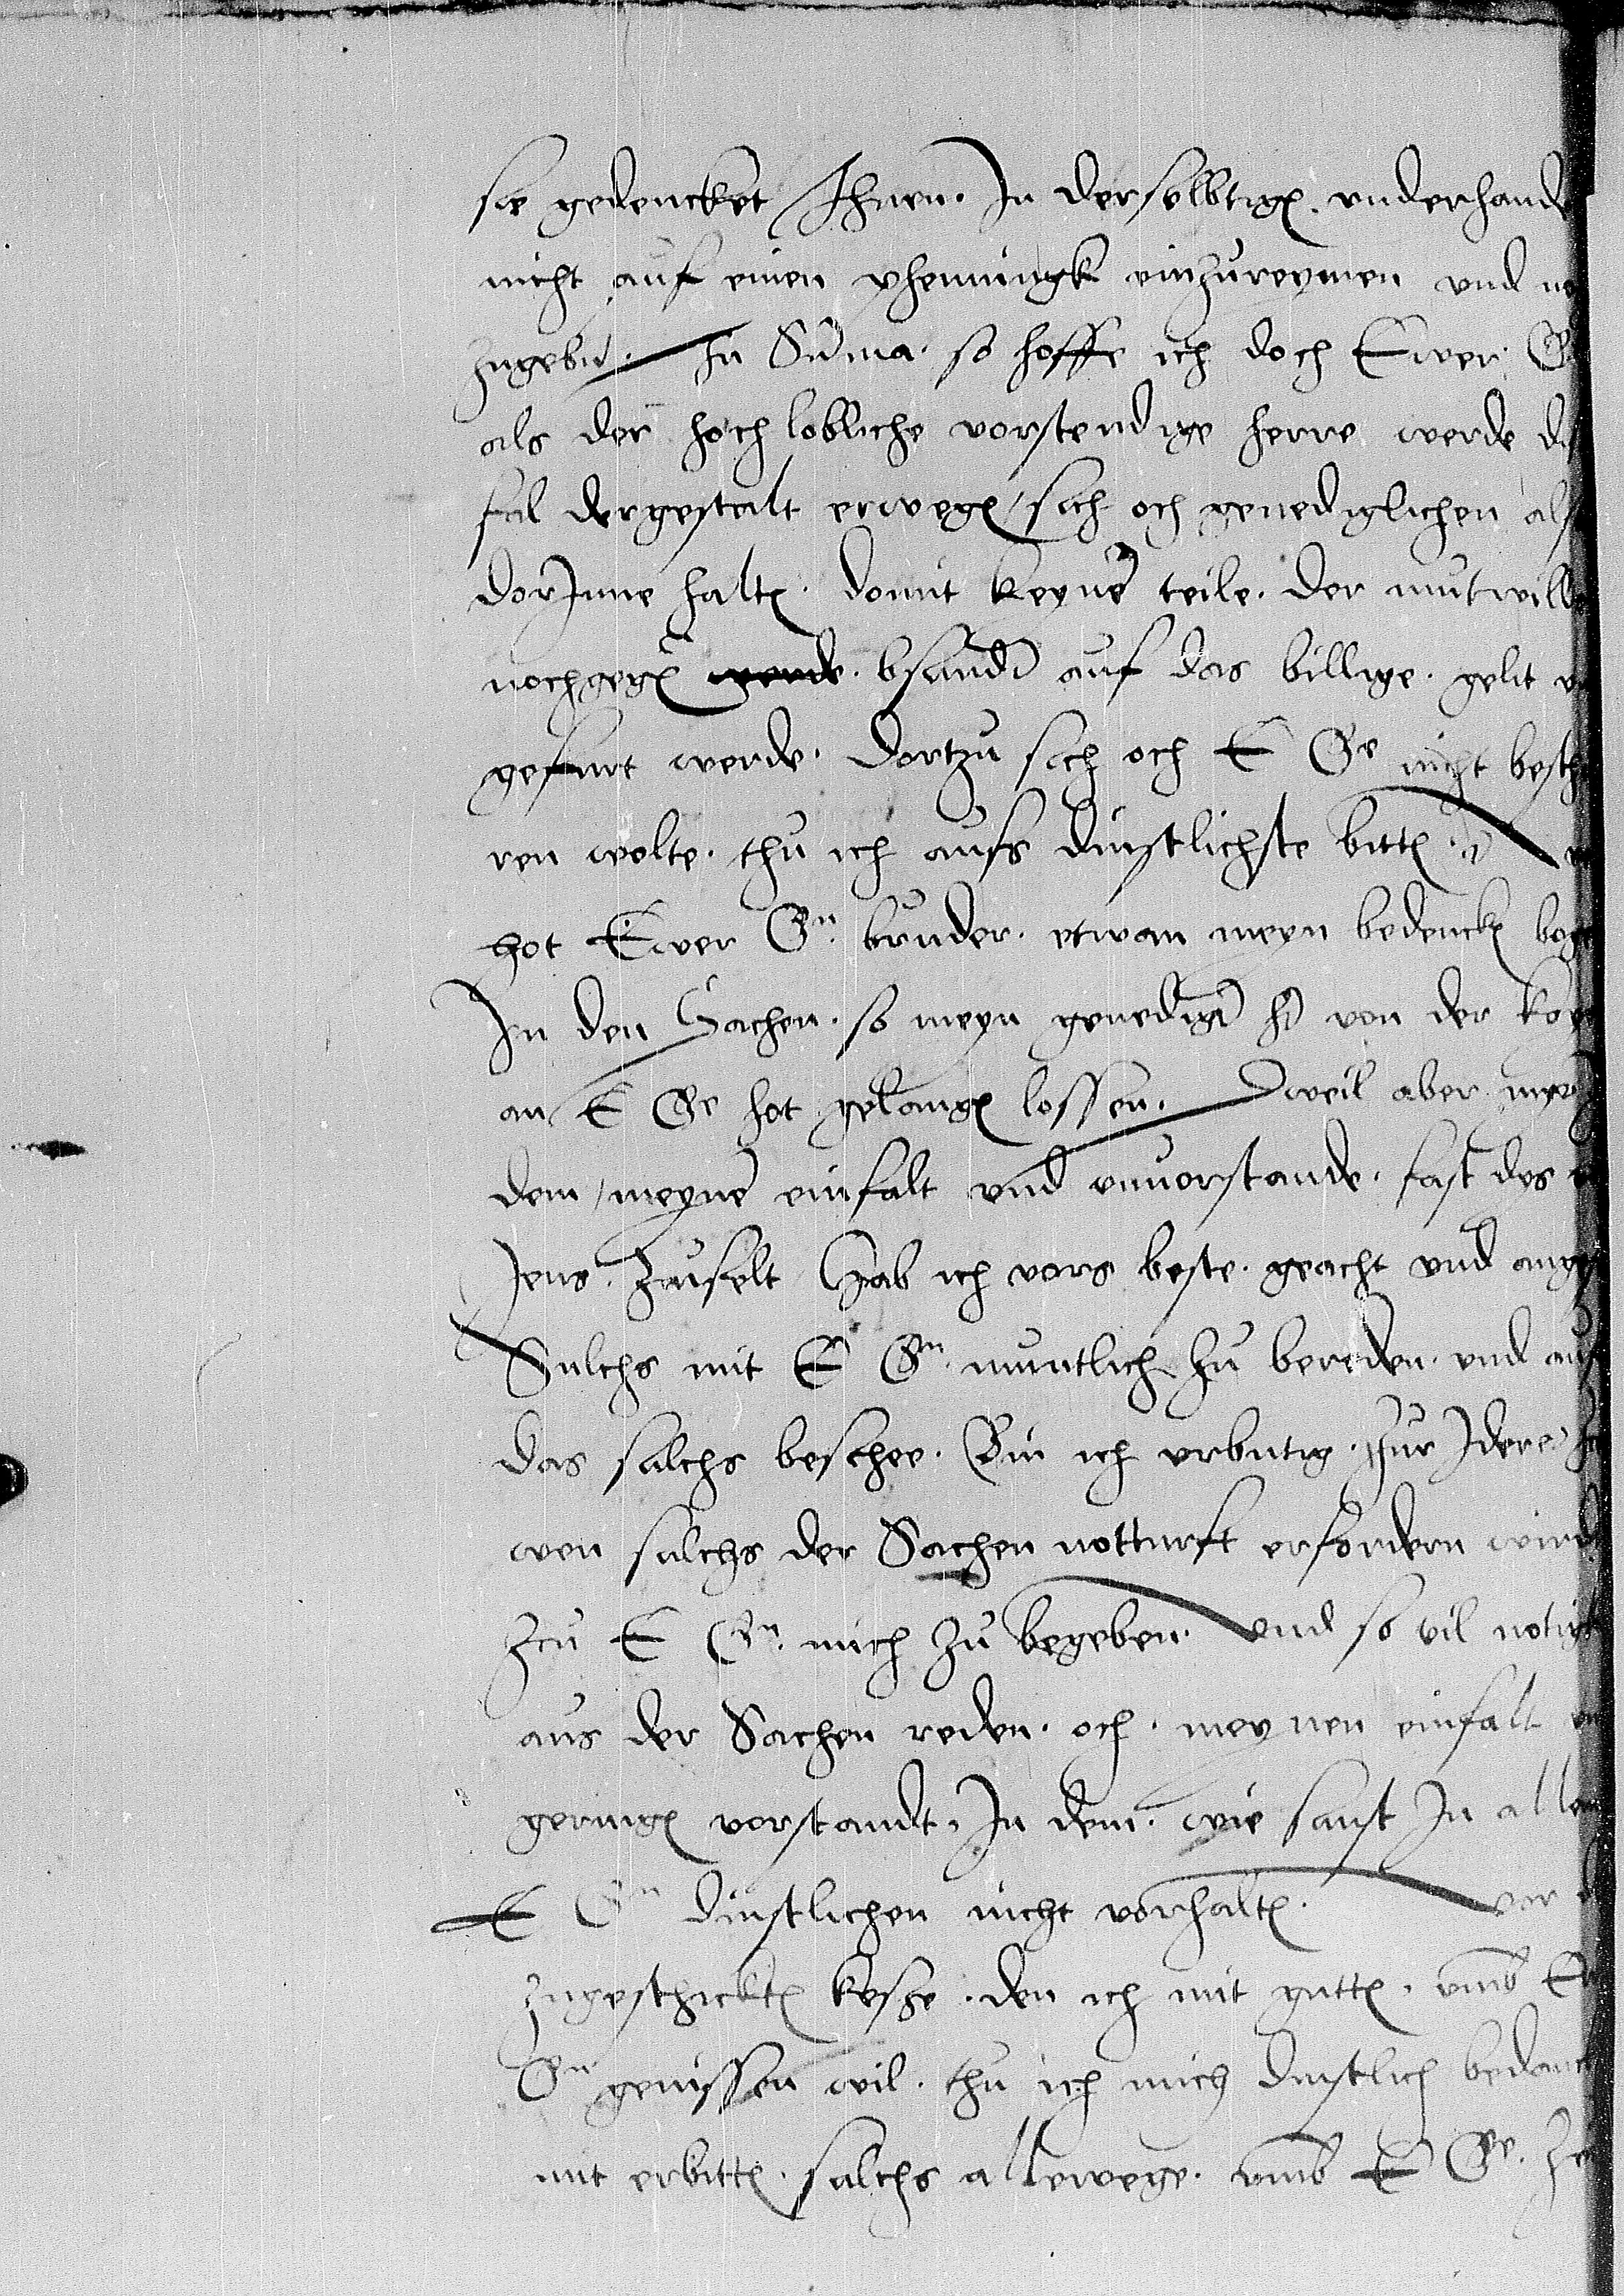 sie gedencket Ihnen. In derselbtigen. vnderhand
nicht auf einen phenningk einzureymen vnd no
zugeben. In Suma. so hoffe ich doch Ewer. G
als der hoch lobliche vorstendige herre werde di
fal dergestalt erwegen, sich och genediglichen als
dorInne halten. domit keyne teile. der mutwill
nochgegen werde. bsander auf das billige. gelt v
gefurt werde. dortzu sich och E Ge nicht besch
ren wolte. thu ich aufs dinstlichste bitten.
hot Ewer Gn. bruder. etwan meyn bedencken bag
In den Sachen. so meyn genediger her von der
an E Ge hot gelangen lossen. Dweil aber mye
dem, meyne einfalt vnd vnuorstande. fast des
Jens. Hab ich vors beste. geacht vnd ange
Sulchs mit E Gn. muntlich zu bereden. vnd auf
das salchs beschee. Bin ich vrbutig. zur Idere
wen sulchs der Sachen notturft erfordern wird
zcu E Gn. mich zu begeben. vnd so vil notig
aus der Sachen reden. och. meynen einfalt vn
geringen vorstandt. In dem. wie sanst In allem
E Gn dinstlichen nicht vorhalten. vor d
zugeschickten kesze. den ich mit gutten. vmb E
Gn genissen wil. thu ich mich dinstlich bedanck
mit erbitten. salchs allewege. vmb E Ge. ze